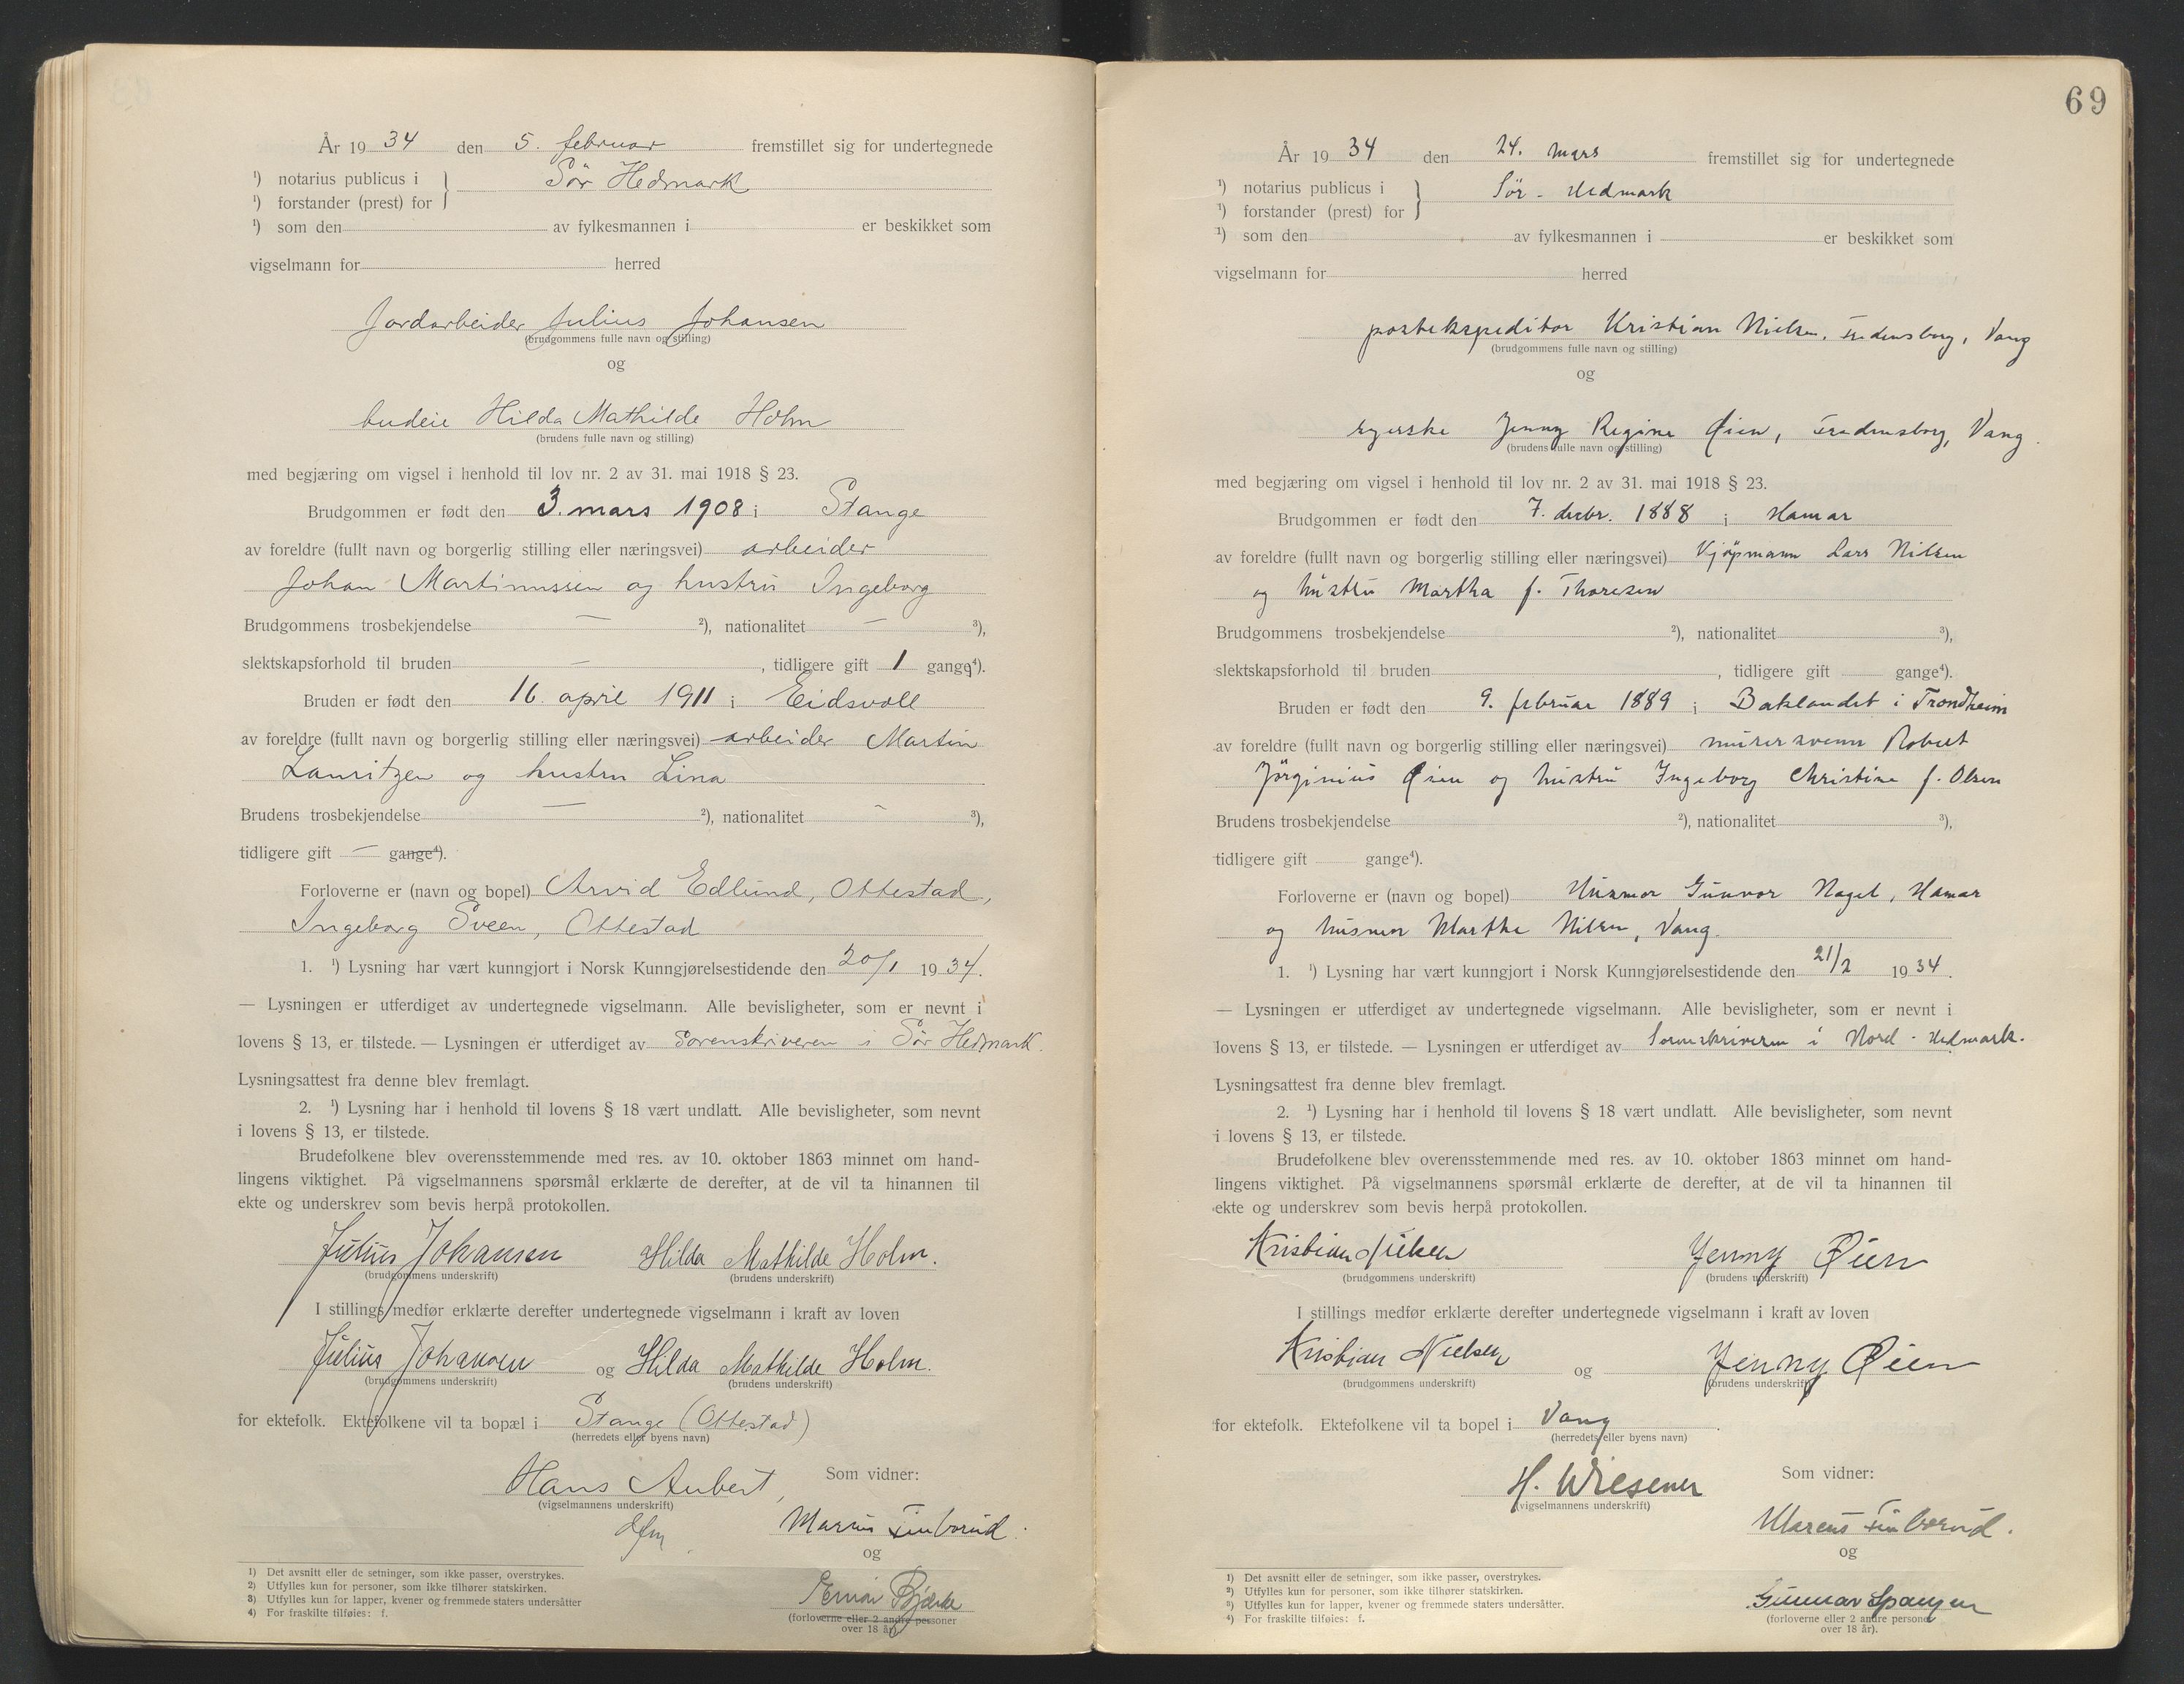 År 19 34 den 5. februar fremstillet sig for undertegnede
¹) notarius publicus i } Sör Hedmark
¹) forstander (prest) for
¹) som den av fylkesmannen i er beskikket som
vigselmann for herred
Jordarbeider Julius Johansen
(brudgommens fulle navn og stilling)
og
budeie Hilda Mathilde Holm
(brudens fulle navn og stilling)
med begjæring om vigsel i henhold til lov nr. 2 av 31. mai 1918 § 23.
Brudgommen er født den 3. mars 1908 i Stange
av foreldre (fullt navn og borgerlig stilling eller næringsvei) arbeider
Johan Martinussen og hustru Ingeborg
Brudgommens trosbekjendelse — ²), nationalitet — ³),
slektskapsforhold til bruden — , tidligere gift 1 gange⁴).
Bruden er født den 16. april 1911 i Eidsvoll
av foreldre (fullt navn og borgerlig stilling eller næringsvei) arbeider Martin
Lauritzen og hustru Lina
Brudens trosbekjendelse — ²), nationalitet — ³),
tidligere gift — gange⁴).
Forloverne er (navn og bopel) Arvid Edlund, Ottestad,
Ingeborg Sveen, Ottestad
1. ¹) Lysning har vært kunngjort i Norsk Kunngjørelsestidende den 20/1 19 34.
— Lysningen er utferdiget av undertegnede vigselmann. Alle bevisligheter, som er nevnt i
lovens § 13, er tilstede. — Lysningen er utferdiget av Sorenskriveren i Sör Hedmark.
Lysningsattest fra denne blev fremlagt.
2. ¹) Lysning har i henhold til lovens § 18 vært undlatt. Alle bevisligheter, som nevnt
i lovens § 13, er tilstede.
Brudefolkene blev overensstemmende med res. av 10. oktober 1863 minnet om hand-
lingens viktighet. På vigselmannens spørsmål erklærte de derefter, at de vil ta hinannen til
ekte og underskrev som bevis herpå protokollen.
Julius Johansen Hilda Mathilde Holm.
(brudgommens underskrift) (brudens underskrift)
I stillings medfør erklærte derefter undertegnede vigselmann i kraft av loven
Julius Johansen og Hilda Mathilde Holm.
(brudgommens underskrift) (brudens underskrift)
for ektefolk. Ektefolkene vil ta bopæl i Stange (Ottestad)
(herredets eller byens navn)
Hans Aubert, Som vidner:
(vigselmannens underskrift)
Marius Finborud.
og
Bjerke
(forloverne eller 2 andre personer
over 18 år).
1) Det avsnitt eller de setninger, som ikke passer, overstrykes.
2) Utfylles kun for personer, som ikke tilhører statskirken.
3) Utfylles kun for lapper, kvener og fremmede staters undersåtter
4) For fraskilte tilføies: f.
69
År 19 34 den 24. mars fremstillet sig for undertegnede
¹) notarius publicus i } Sör-Hedmark
¹) forstander (prest) for
¹) som den av fylkesmannen i er beskikket som
vigselmann for herred
postekspeditor Kristian Nielsen, Fredensborg, Vang
(brudgommens fulle navn og stilling)
og
syerske Jenny Regine Øien, Fredensborg, Vang.
(brudens fulle navn og stilling)
med begjæring om vigsel i henhold til lov nr. 2 av 31. mai 1918 § 23.
Brudgommen er født den 7. decbr. 1888 i Hamar
av foreldre (fullt navn og borgerlig stilling eller næringsvei) Kjøpmann Lars Nilsen
og hustru Martha f. Thoresen
Brudgommens trosbekjendelse ²), nationalitet ³),
slektskapsforhold til bruden , tidligere gift gange⁴).
Bruden er født den 9. februar 1889 i Baklandet i Trondheim
av foreldre (fullt navn og borgerlig stilling eller næringsvei) murersvenn Robert
Jörginius Øien og hustru Ingeborg Christine f. Olsen
Brudens trosbekjendelse ²), nationalitet ³),
tidligere gift gange⁴).
Forloverne er (navn og bopel) Husmor Gunvor Nagel, Hamar
og husmor Martha Nilsen, Vang.
1. ¹) Lysning har vært kunngjort i Norsk Kunngjørelsestidende den 21/2 19 34.
— Lysningen er utferdiget av undertegnede vigselmann. Alle bevisligheter, som er nevnt i
lovens § 13, er tilstede. — Lysningen er utferdiget av Sorenskriveren i Nord-Hedmark.
Lysningsattest fra denne blev fremlagt.
2. ¹) Lysning har i henhold til lovens § 18 vært undlatt. Alle bevisligheter, som nevnt
i lovens § 13, er tilstede.
Brudefolkene blev overensstemmende med res. av 10. oktober 1863 minnet om hand-
lingens viktighet. På vigselmannens spørsmål erklærte de derefter, at de vil ta hinannen til
ekte og underskrev som bevis herpå protokollen.
Kristian Nielsen Jenny Øien
(brudgommens underskrift) (brudens underskrift)
I stillings medfør erklærte derefter undertegnede vigselmann i kraft av loven
Kristian Nielsen og Jenny Øien
(brudgommens underskrift) (brudens underskrift)
for ektefolk. Ektefolkene vil ta bopel i Vang.
(herredets eller byens navn)
H. Wiesener Som vidner:
(vigselmannens underskrift)
Marius Finborud.
og
Gunnar Spangen
(forloverne eller 2 andre personer
over 18 år).
1) Det avsnitt eller de setninger, som ikke passer, overstrykes.
2) Utfylles kun for personer, som ikke tilhører statskirken.
3) Utfylles kun for lapper, kvener og fremmede staters undersåtter.
4) For fraskilte tilføies: f.